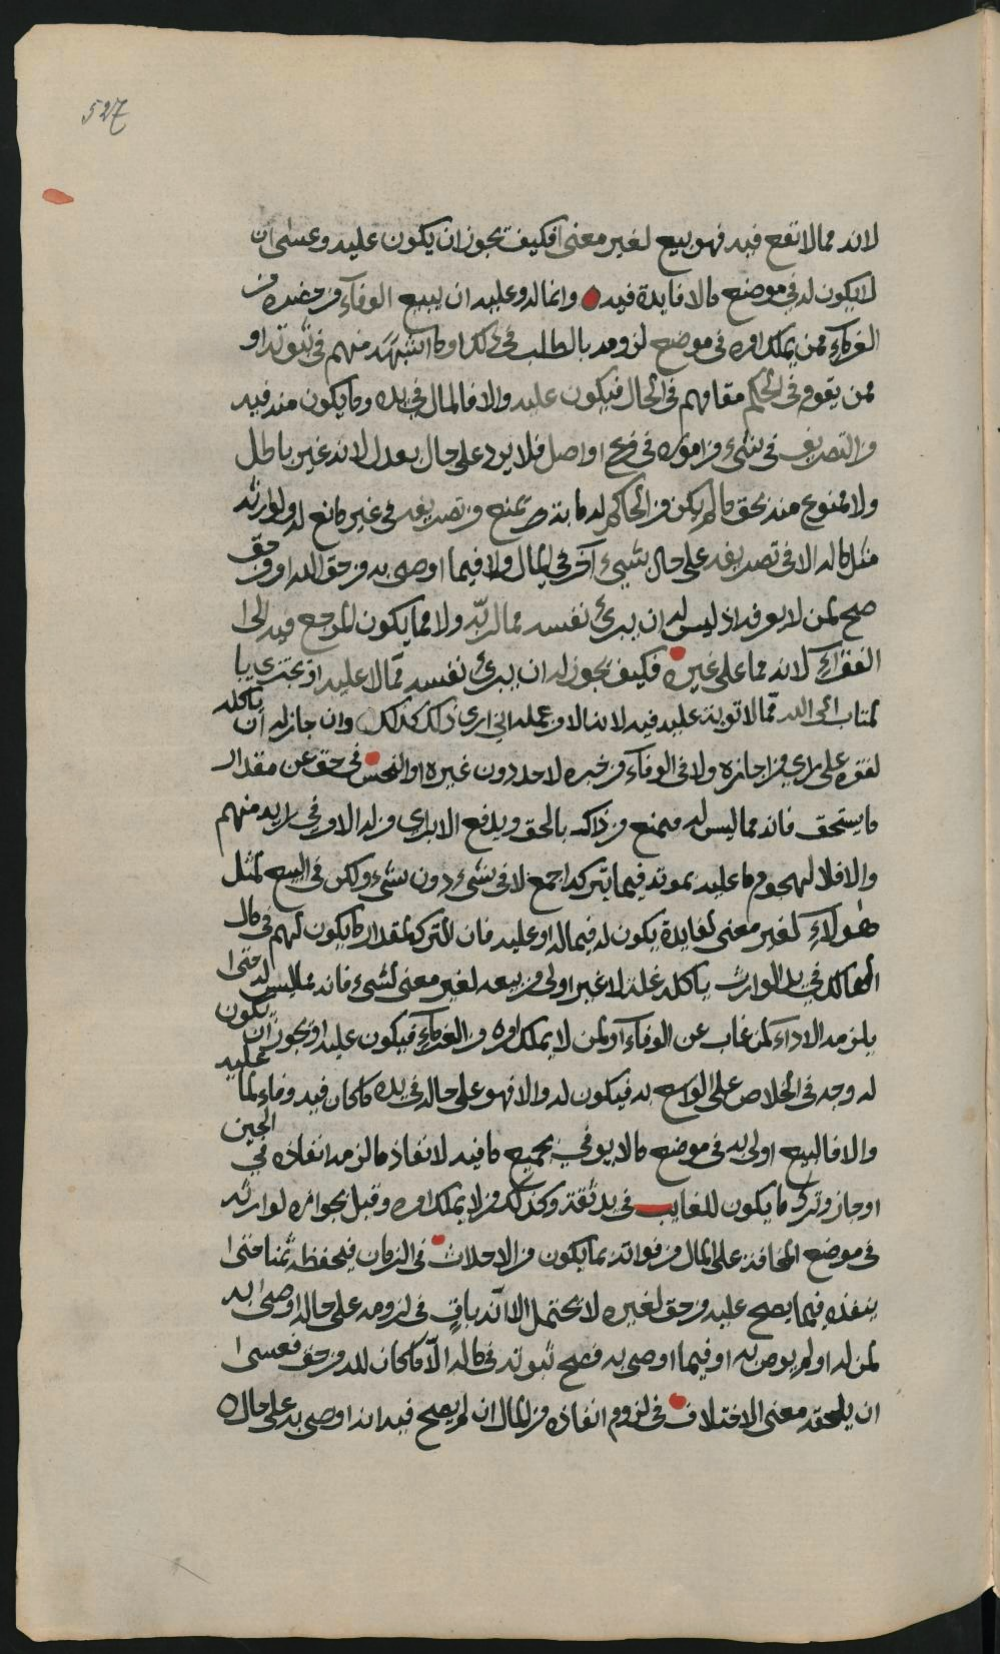 527
لانه مما لا نفع فيه فهو بيع لغير معنى افكيف يجوز ان يكون عليه وعسى ان
لا يكون له في موضع ما لا فايدة فيه وانما له وعليه ان يبيع الوفاء من حضره من
الغرماء ممن يملك امره في موضع لزومه بالطلب في ذلك او ما اشبهه منهم في ثبوته او
ممن يقوم في الحكم مقامهم في الحال فيكون عليه والا فالمال في يده وما يكون منه فيه
من التصريف في شيء من اموره في فرع او اصل فلا يرد على حال بعدل لانه غير باطل
ولا ممنوع منه بحق ما لم يكن من الحاكم له ما به يمنع من تصريفه في غير مانع له ولوارثه
مثل ماله الا في تصريفه على حال بشيء آخر في المال ولا فيما اوصى به من حق الله او من حق
صح لمن لا يعرفه اذ ليس له ان يبرئ نفسه مما لربّه ولا مما يكون المرجع فيه الى
الفقراء لانه مما على غيره فكيف يجوز له ان يبرئ نفسه ممّا لا عليه او يجتزي با
لمتاب الى الله ممّا لا توبة عليه فيه لانه لا من عمله اني ارى ذلك كذلك وان جاز له ان ياكله
لفقره على راي من اجازه ولا في الوفاء من خيره لاحد دون غيره او البخس في حق عن مقدار
ما يستحق فانه مما ليس له فيمنع من ذلك بالحق ويدفع الا برأي من له الا وفي لزيد منهم
والا فلا لهجوم ما عليه بموته فيما يتركه اجمع لا في شيء دون شيء ولكن في البيع لمثل
هولاء لغير معنى لفايدة يكون له فيما له او عليه فان للتركه لمقدار ما يكون لهم في مال
الهالك في يد الوارث ياكله غلة لا غير اولى من بيعه لغير معنى لشيء فانه مما ليس له حتى
يلزمه الاداء لمن غاب عن الوفاء او لمن لا يملك امره من الغرماء فيكون عليه او يجوز ان يكون
له وجه في الخلاص على الواسع له فيكون له والا فهو على حاله في يده ما كان فيه وفاء لما عليه
والا فالبيع اولى به في موضع ما لا يوفي بجميع ما فيه لانفاذ ما لزمه انفاذه في الحين
او جاز وترك ما يكون للغايب في يد ثقة وكذلك من لا يملك امره وقيل بجوازه لوارثه
في موضع المخافة على المال من فواته بما يكون من الاحداث في الزمان فيحفظه ثمنا حتى
ينفذه فيما يصح عليه من حق لغيره لا يحتمل الا انّه باقٍ في لزومه على حاله اوصى به
لمن له او لم يوص به او فيما اوصى به فصح ثبوته في ماله الّا ما كان لله من حق فعسى
ان يلحقه معنى الاختلاف في لزوم انفاذه من المال ان لم يصح فيه انه اوصى به على حال